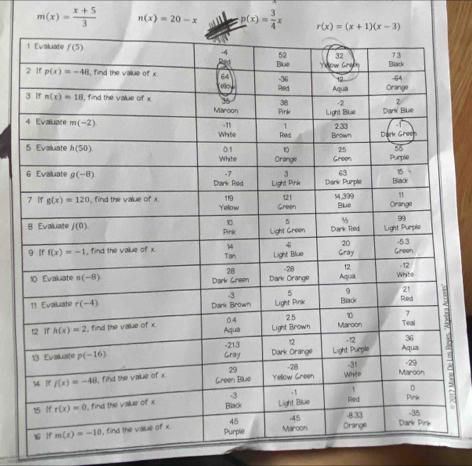 m(x) = x + 5 / 3 n(x) = 20 − x p(x) = 3/4 x r(x) = (x + 1)(x − 3)
1 Evaluate f(5). -4 Red 52 Blue 32 Yellow Green 73 Black
2 If p(x) = −48, find the value of x. 64 Yellow -36 Red 12 Aqua -64 Orange
3 If n(x) = 18, find the value of x. 35 Maroon 38 Pink -2 Light Blue 2 Dark Blue
4 Evaluate m(−2). -11 White 1 Red 2.33 Brown -1 Dark Green
5 Evaluate h(50). 0.1 White 10 Orange 25 Green 55 Purple
6 Evaluate g(−8). -7 Dark Red 3 Light Pink 63 Dark Purple 15 Black
7 If g(x) = 120, find the value of x. 119 Yellow 121 Green 14,399 Blue 11 Orange
8 Evaluate j(0). 10 Pink 5 Light Green ½ Dark Red 99 Light Purple
9 If f(x) = −1, find the value of x. 14 Tan Light Blue 20 Gray -5.3 Green
10 Evaluate n(−8). 28 Dark Green -28 Dark Orange 12 Aqua -12 White
11 Evaluate r(−4). -3 Dark Brown 5 Light Pink 9 Black 21 Red
12 If h(x) = 2, find the value of x. 0.4 Aqua 2.5 Light Brown 10 Maroon 7 Teal
13 Evaluate p(−16). -21.3 Gray 12 Dark Orange -12 Light Purple 36 Aqua
14 If j(x) = −48, find the value of x. 29 Green Blue -28 Yellow Green -31 White -29 Maroon
15 If r(x) = 0, find the value of x. -3 Black -1 Light Blue 1 Red 0 Pink
16 If m(x) = −10, find the value of x. 45 Purple -45 Maroon -8.33 Orange -35 Dark Pink
© 2017 "Algebra Accents"